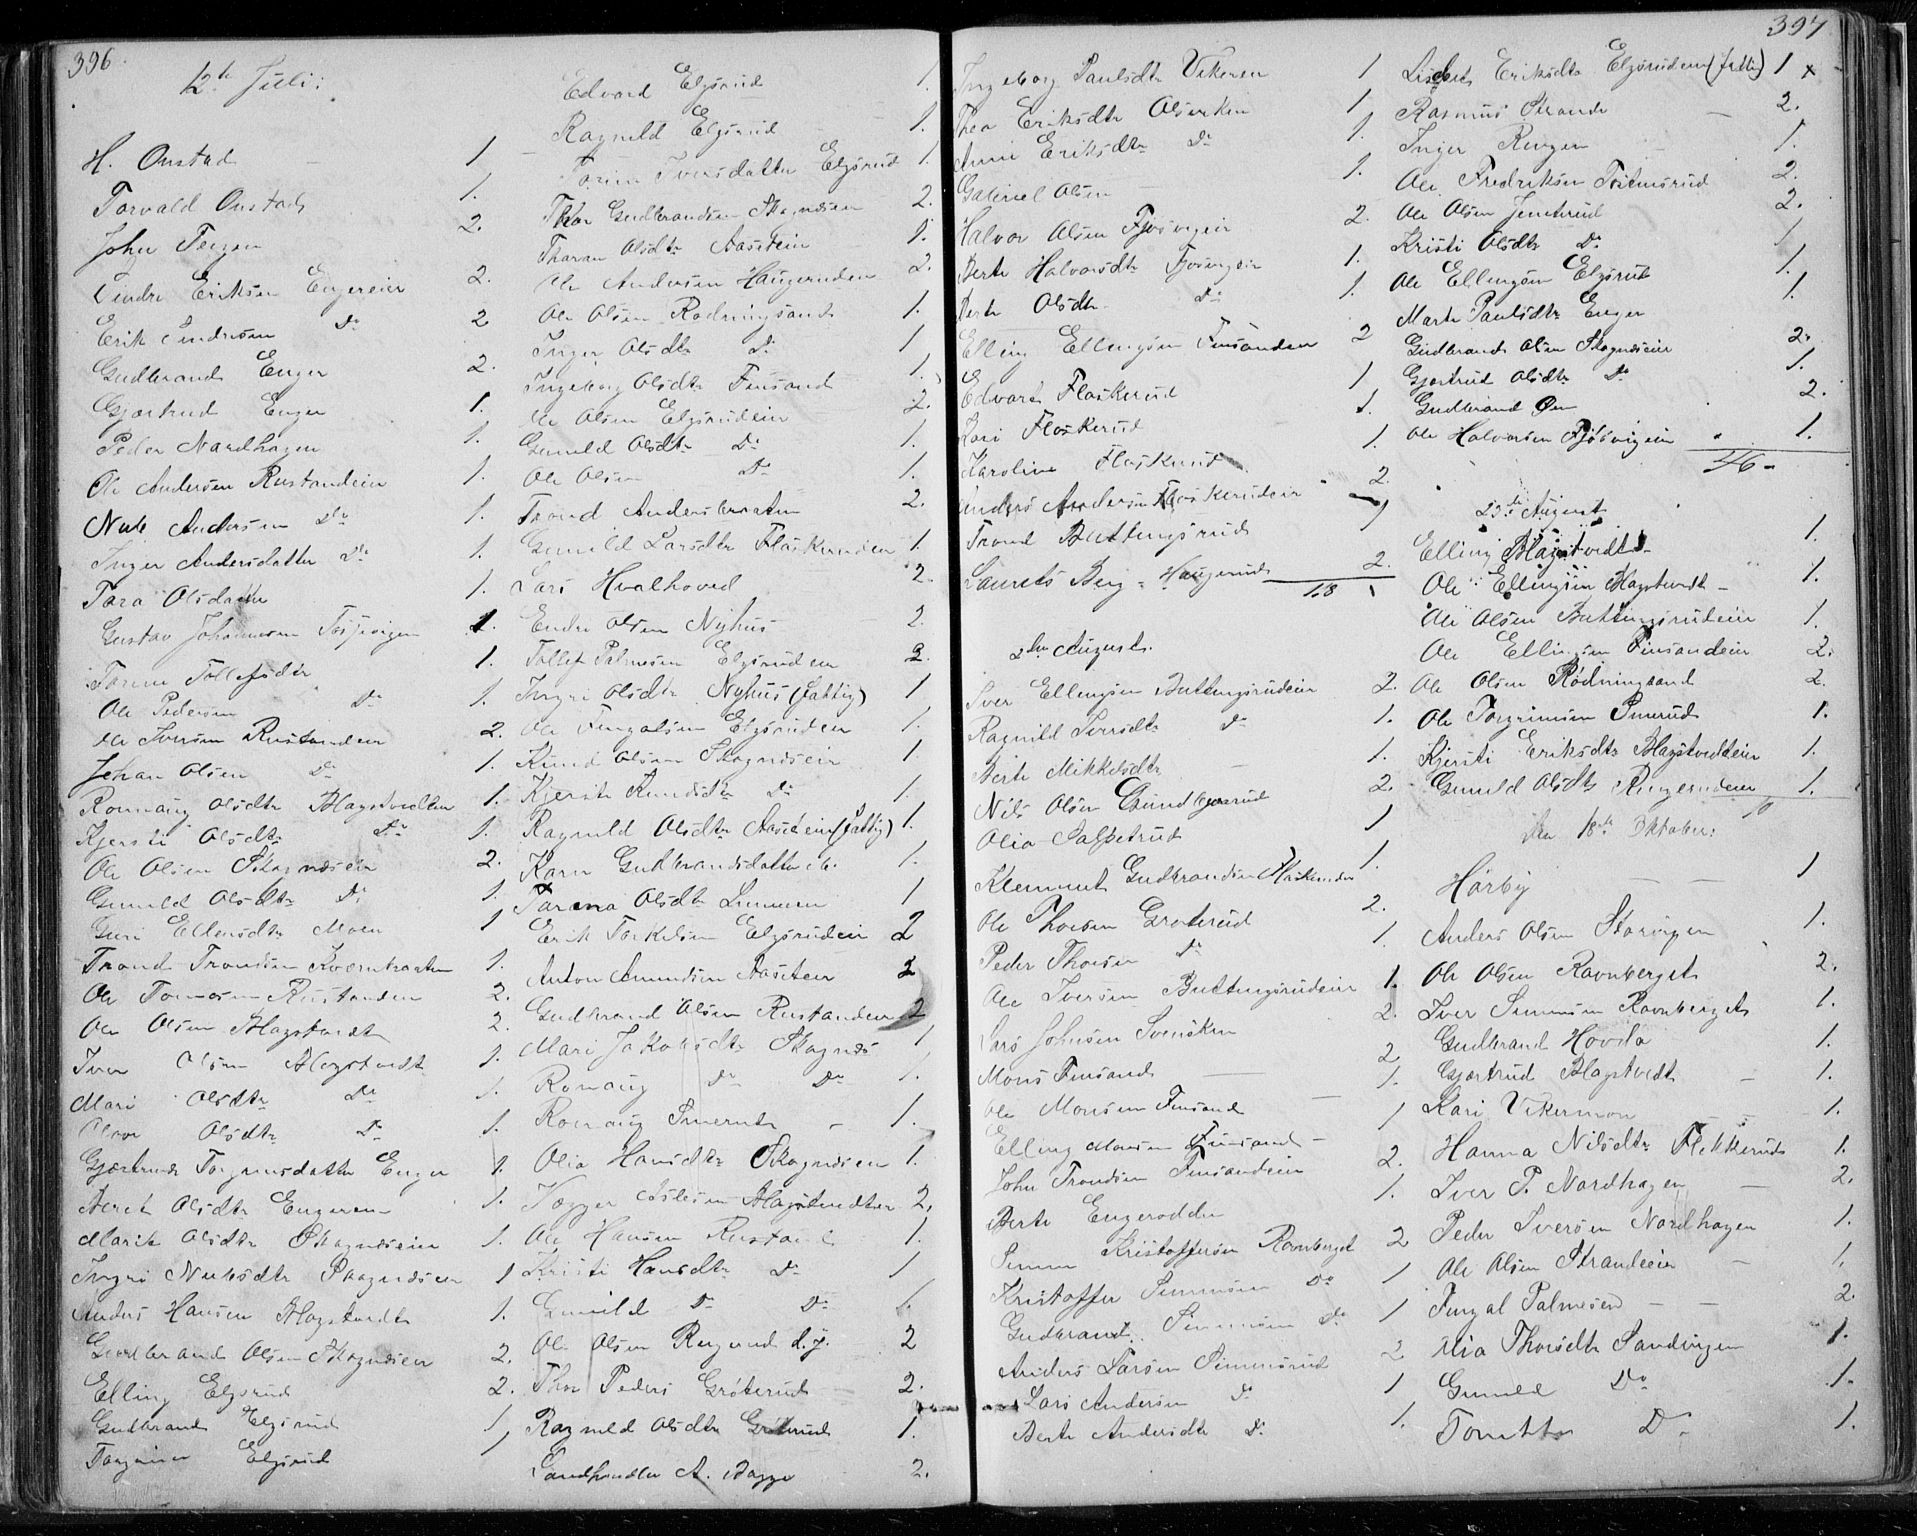 396
12te Juli:
H. Onstad 1
Torvald Onstad 1.
John Tergen 2.
Endre Eriksen Engereier 2.
Erik Endresen Do 2
Gudbrand Enger 2.
Gjærtrud Enger 1.
Peder Nordhagen 1.
Ole Andersen Rustandeier 1.
Andersen Do 1.
Inger Andersdatter Do 1.
Tora Olsdatter 1.
Gustav Johannesen 1.
Torine Tollefsdtr 1.
Ole Pedersen Do 1.
Ole Iversen Rustandeier 2.
Johan Olsen Do 1.
Ronnaug Olsdtr Hagstvedteie 1.
Kjersti Olsdtr Do 1.
Ole Olsen Skagnæseier 2.
Gunild Olsdtr Do 1.
Guri Ellensdtr Moen 1
Trond Trondsen Kværnbraaten 1.
Ole Rustandeier 2.
Ole Olsen Hagstvedt 2.
Iver Olsen Hagstvedt 1.
Mari Olsdtr Do 1.
Olsdtr Do 1.
Gjærtrud Torgrimsdatter Enger 1.
Beret Olsdtr Engereie 1.
Marit Olsdtr Skagnæseier 1.
Ingri Skagnæseier 1
Anders Hansen Hagstvedt 1.
Gudbrand Olsen Skagnæseier 2.
Elling Elgsrud 2.
Gudbrand Elgsrud 1
Torgrim Elgsrud 1
Edvard Elgsrud 1.
Ragnild Elgsrud 1.
Torine Iversdatter Elgsrud 1.
Thor Gudbrandsen Skagnæseier 2.
Tharan Olsdtr Aaseteier 1.
Ole Andersen Haugerudeie 2.
Ole Olsen Rødningsand 1.
Inger Olsdtr Do 1
Ingeborg Olsdtr Finsand 1.
Ole Olsen Elgsrudeier 2.
Gunild Olsdtr Do 1.
Ole Olsen Do 1.
Trond Andersbraaten 2.
Gunild Larsdtr Flaskerudeie 1.
Lars Hvalhoved 2.
Endre Olsen Nyhus 2.
Tollef Palmesen Elgsrudeie 2.
Ingri Olsdtr Nyhus (fattig) 1
Ole Fingalsen Elgsrudeie 1.
Knud Olsen Skagnæseier 1
Kjersti Knudsdtr Do 1.
Ragnild Olsdtr Aaseteie (fattig) 1.
Karen Gudbrandsdatter 1.
Olsdtr 1
Erik Torkelsen Elgsrudeie 2
Anton Amundsen Aaseteier 2
Gudbrand Olsen Rustandeie 2
Mari Jakobsdtr Skagnæs 1
Ronnaug Do Do 1.
Ronnaug Smerud 1.
Olia Hansdtr Skagnæseie 1.
Hagstvedteie 2.
Ole Hansen Rustand 1.
Kristi Hansdtr Do 1
Gunild Do Do 1.
Ole Olsen d.y. 2
Thor Peders Grøterud 2.
Ragnild Olsdtr Grøterud 1.
Landhandler A. Bagge 2.
397
Ingeborg Paulsdtr Vikeren 1
Thea Eriksdtr 1
Anne Eriksdtr Do 1.
Gabriel Olsen 1.
Halvor Olsen Fjøsvigeie 2.
Berte Halvorsdtr Fjøsvigeie 1.
Berte Olsdtr Do 1.
Elling Ellingsen Finsandeie 2
Edvard Flaskerud 1
Kari Flaskerud 1.
Karoline Flaskerud 1.
Anders Andersen Flaskerudeier 2.
Trond Buttingsrud 1
Laurets Berg Haugerud 2.
18
2den August.
Iver Ellingsen Buttingsrudeier 2.
Ragnild Iversdtr Do 1.
Berte Mikkelsdtr 1.
Nils Olsen Gundbjørsrud 2.
Olia 1
Klemmet Gudbrandsen Flaskerudeie 1.
Ole Thorsen Grøterud 2.
Peder Thorsen Do 1.
Ole Iversen Buttingsrudeier 1.
Lars Johnsen Svensken 2.
Mons Finsand 2
Ole Monsen Finsand 1.
Elling Monsen Finsand 1
John Trondsen Finsandeier 2.
Berte Engerodden 1.
Simen Kristoffersen Ravnberget 2
Kristoffer Simensen Do 1
Gudbrand Simensen Do 1
Anders Larsen Simensrud 2
Lars Andersen Do 1
Berte Andersdtr Do 1.
Lisbet Eriksdtr Elgsrudeie (fattig) 1 x
Rasmus Strande 2.
Inger Ringen 1.
Ole Fredriksen Tostensrud 2.
Ole Olsen Jentsrud 2.
Kristi Olsdtr Do 1
Ole Ellingsen Elgsrud 1.
Marte Paulsdtr Enger 1.
Gudbrand Olsen Skagnæseie 2.
Gjærtrud Olsdtr Do 1.
Gudbrand Øen 2.
Ole Halvorsen Fjøsvigeie 1.
46
23de August
Elling Hagstvedt 1.
Ole Ellingsen Hagstvedt 1.
Ole Olsen Buttingsrudeier 1.
Ole Ellingsen Finsandeier 2.
Ole Olsen Rødningsand 2.
Ole Torgrimsen Smerud 1.
Kjersti Eriksdtr Hagstvedteier 1.
Gunild Olsdtr Ringerudeier 1.
10
den 18de Oktober:
Hørby 1
Anders Olsen Storvigen 1.
Ole Olsen Ravnberget 2.
Iver Simensen Ravnberget 1.
Gudbrand Hovda 1.
Gjærtrud Hagstvedt 1.
Kari Vikermoen 1.
Hanna Nilsdtr Flikkerud 1.
Iver P. Nordhagen 2.
Peder Iversen Nordhagen 1.
Ole Olsen Strandeeier 1.
Fingal Palmesen 2.
Mia Thorsdtr Sandvigen 1.
Gunild Do 1.
Tonette Do 1.